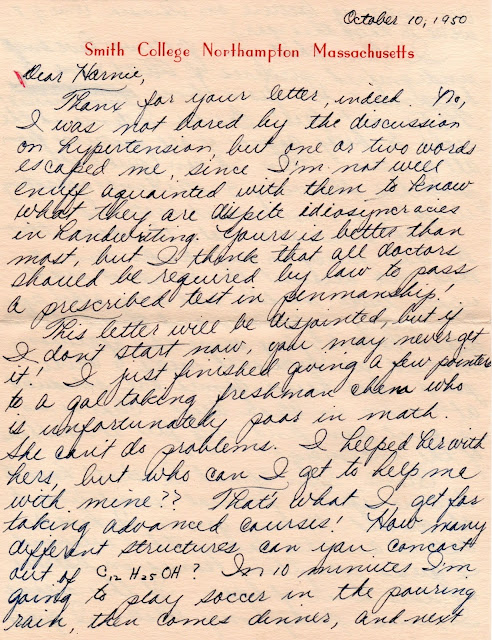 October 10, 1950
Smith College Northampton Massachusetts
Dear Harnie,
Thanx for your letter, indeed. No,
I was not bored by the discussion
on hypertension, but one or two words
escaped me, since I'm not well
enuff aquainted with them to know
what they are dispite idiosyncracies
in handwriting. Yours is better than
most, but I think that all doctors
should be required by law to pass
a prescribed test in penmanship!
This letter will be disjointed, but if
I don't start now, you may never get
it! I just finished giving a few pointers
to a gal taking freshman chem who
is unfortunately poor in math.
She can't do problems. I helped her with
hers, but who can I get to help me
with mine?? That's what I get for
taking advanced courses! How many
different structures can you concoct
out of C12 H25 OH? In 10 minutes I'm
going to play soccer in the pouring
rain, then comes dinner, and next